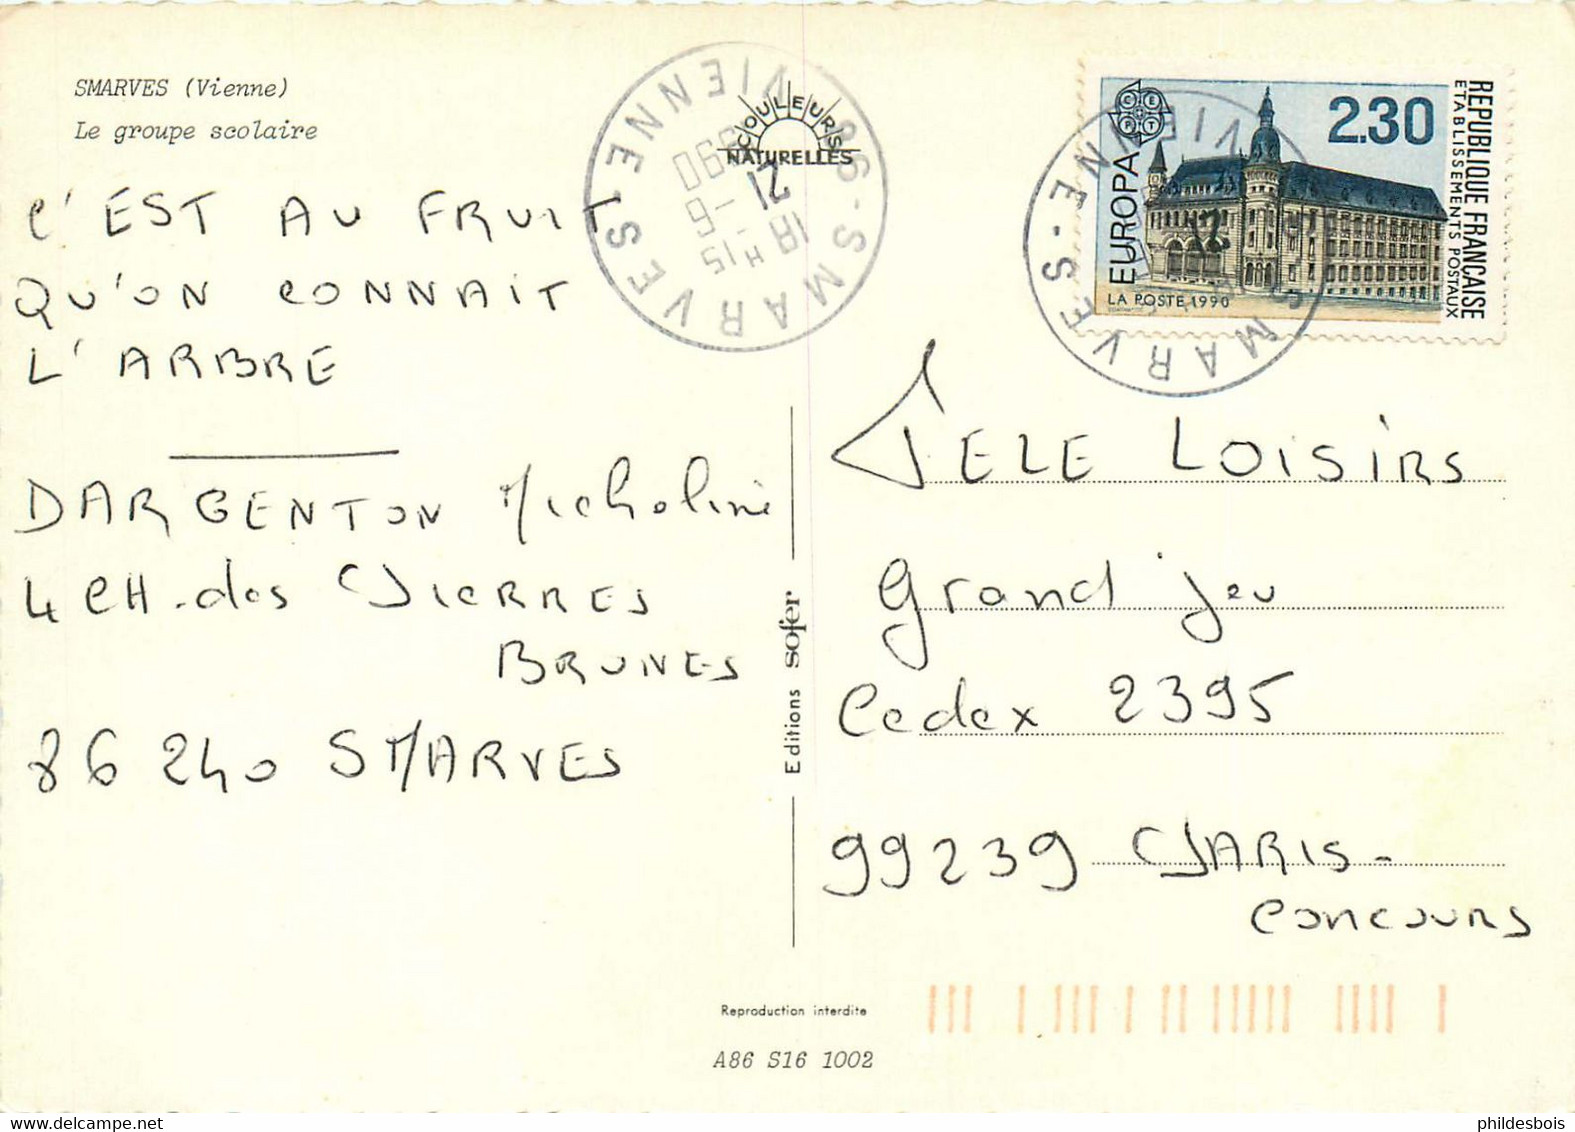 SMARVES (Vienne)
Le groupe scolaire
C'EST AU FRUIT
QU'ON CONNAIT
L'ARBRE
DARGENTON Micholine
4 CH. des PIERRES
BRUNES
86240 SMARVES
COULEURS
NATURELLES
86 - SMARVES - VIENNE
18 H 15
21 - 9
1990
Editions sofer
REPUBLIQUE FRANÇAISE
ETABLISSEMENTS POSTAUX
2.30
CEPT
EUROPA
LA POSTE 1990
SMARVES - VIENNE
TELE LOISIRS
Grand jeu
Cedex 2395
99239 PARIS -
CONCOURS
Reproduction interdite
A86 S16 1002
phildesbois